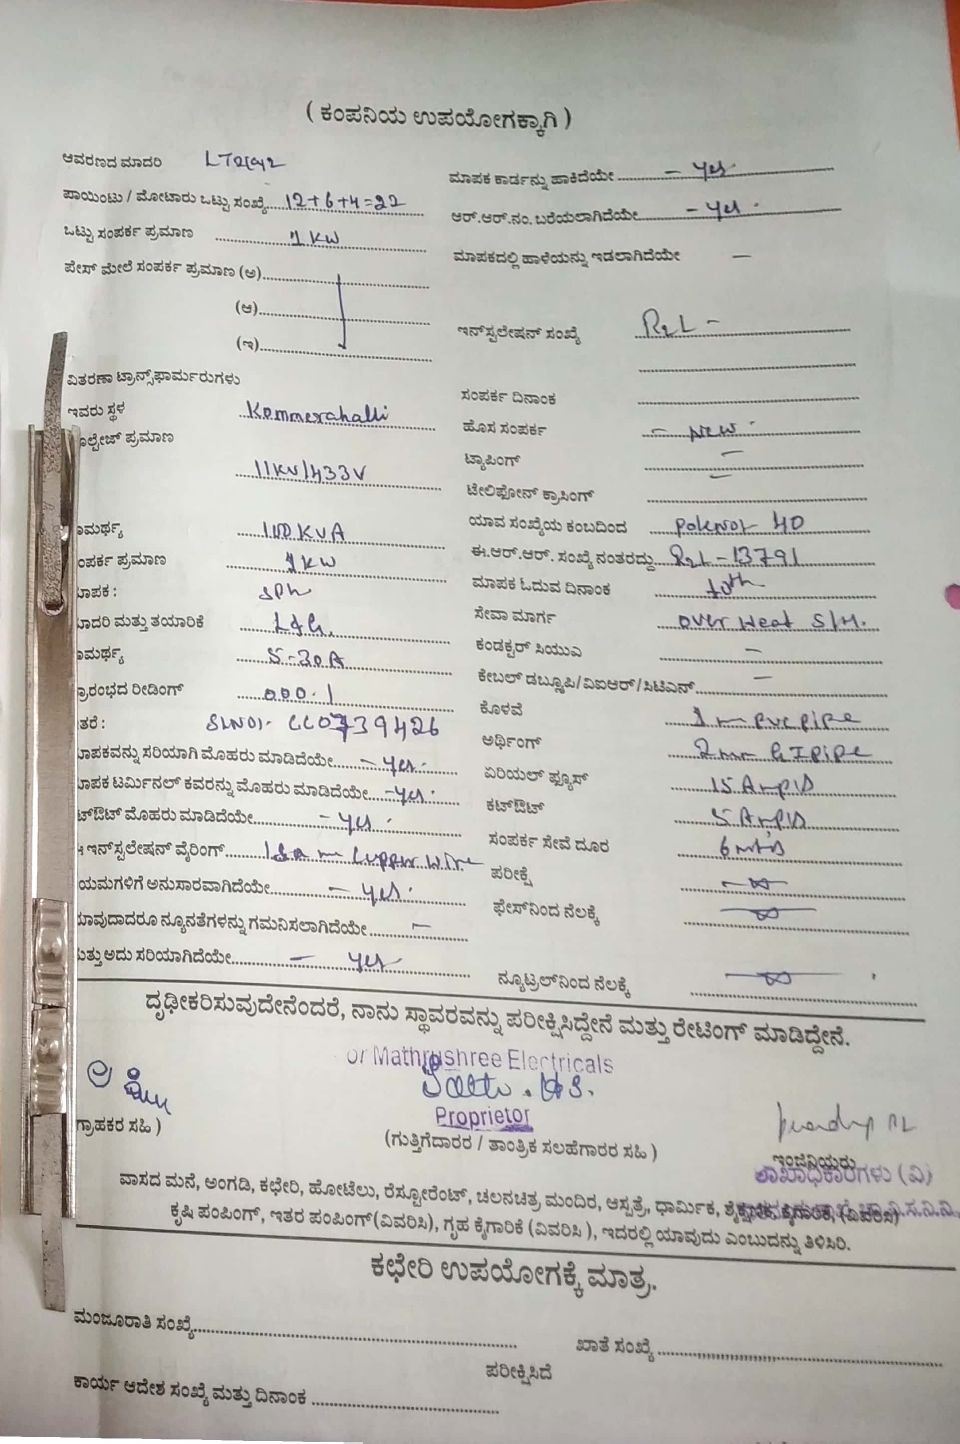 ( ಕಂಪನಿಯ ಉಪಯೋಗಕ್ಕಾಗಿ )
ಆವರಣದ ಮಾದರಿ
ಪಾಯಿಂಟು / ಮೋಟಾರು ಒಟ್ಟು ಸಂಖ್ಯೆ 12+6+4=22
ಒಟ್ಟು ಸಂಪರ್ಕ ಪ್ರಮಾಣ 1 KW
ಪೇಸ್ ಮೇಲೆ ಸಂಪರ್ಕ ಪ್ರಮಾಣ (ಅ)
(ಆ)
(ಇ)
ವಿತರಣಾ ಟ್ರಾನ್ಸ್‌ಫಾರ್ಮರುಗಳು
ಇವರು ಸ್ಥಳ Kommerahalli
ೋಲ್ಟೇಜ್ ಪ್ರಮಾಣ
11KV/433V
ಾಮರ್ಥ್ಯ 100 KVA
ಂಪರ್ಕ ಪ್ರಮಾಣ 1 KW
ಾಪಕ : SPh
ಾದರಿ ಮತ್ತು ತಯಾರಿಕೆ L&G.
ಾಮರ್ಥ್ಯ 5-30A
್ರಾರಂಭದ ರೀಡಿಂಗ್ 000.1
ತರೆ : SLNO:- CC0739426
ಾಪಕವನ್ನು ಸರಿಯಾಗಿ ಮೊಹರು ಮಾಡಿದೆಯೇ - yes.
ಾಪಕ ಟರ್ಮಿನಲ್ ಕವರನ್ನು ಮೊಹರು ಮಾಡಿದೆಯೇ - yes.
ಟ್‌ಔಟ್ ಮೊಹರು ಮಾಡಿದೆಯೇ - yes
ಇನ್‌ಸ್ಟಲೇಷನ್ ವೈರಿಂಗ್ cupper wire
ಯಮಗಳಿಗೆ ಅನುಸಾರವಾಗಿದೆಯೇ - yes
ಾವುದಾದರೂ ನ್ಯೂನತೆಗಳನ್ನು ಗಮನಿಸಲಾಗಿದೆಯೇ -
ುತ್ತು ಅದು ಸರಿಯಾಗಿದೆಯೇ - yes
ಮಾಪಕ ಕಾರ್ಡನ್ನು ಹಾಕಿದೆಯೇ - yes.
ಆರ್.ಆರ್.ನಂ. ಬರೆಯಲಾಗಿದೆಯೇ - yes.
ಮಾಪಕದಲ್ಲಿ ಹಾಳೆಯನ್ನು ಇಡಲಾಗಿದೆಯೇ -
ಇನ್‌ಸ್ಟಲೇಷನ್ ಸಂಖ್ಯೆ R2L -
ಸಂಪರ್ಕ ದಿನಾಂಕ
ಹೊಸ ಸಂಪರ್ಕ - NEW
ಟ್ಯಾಪಿಂಗ್ -
ಟೇಲಿಫೋನ್ ಕ್ರಾಸಿಂಗ್ -
ಯಾವ ಸಂಖ್ಯೆಯ ಕಂಬದಿಂದ 40
ಈ.ಆರ್.ಆರ್. ಸಂಖ್ಯೆ ನಂತರದ್ದು R2L-13791
ಮಾಪಕ ಓದುವ ದಿನಾಂಕ 10th
ಸೇವಾ ಮಾರ್ಗ over Head S/M.
ಕಂಡಕ್ಟರ್ ಸಿಯುಎ -
ಕೇಬಲ್ ಡಬ್ಲ್ಯೂಪಿ/ವಿಐಆರ್/ಸಿಟಿಎನ್ -
ಕೊಳವೆ 1 m pvc pipe
ಅರ್ಥಿಂಗ್ 2mm G I pipe
ಏರಿಯಲ್ ಫ್ಯೂಸ್ 15 Amps
ಕಟ್‌ಔಟ್ 5 Amps
ಸಂಪರ್ಕ ಸೇವೆ ದೂರ 6 mt's
ಪರೀಕ್ಷೆ
ಫೇಸ್‌ನಿಂದ ನೆಲಕ್ಕೆ
ನ್ಯೂಟ್ರಲ್‌ನಿಂದ ನೆಲಕ್ಕೆ
ದೃಢೀಕರಿಸುವುದೇನೆಂದರೆ, ನಾನು ಸ್ಥಾವರವನ್ನು ಪರೀಕ್ಷಿಸಿದ್ದೇನೆ ಮತ್ತು ರೇಟಿಂಗ್ ಮಾಡಿದ್ದೇನೆ.
or Mathrushree Electricals
Proprietor
ಗ್ರಾಹಕರ ಸಹಿ )
(ಗುತ್ತಿಗೆದಾರರ / ತಾಂತ್ರಿಕ ಸಲಹೆಗಾರರ ಸಹಿ )
ಇಂಜಿನಿಯರು
ಶಾಖಾಧಿಕಾರಿಗಳು (ವಿ)
ವಾಸದ ಮನೆ, ಅಂಗಡಿ, ಕಛೇರಿ, ಹೋಟೆಲು, ರೆಸ್ಟೋರೆಂಟ್, ಚಲನಚಿತ್ರ ಮಂದಿರ, ಆಸ್ಪತ್ರೆ, ಧಾರ್ಮಿಕ, ಶೈಕ್ಷಣಿಕ, ಕೈಗಾರಿಕೆ, (ವಿವರಿಸಿ)
ಕೃಷಿ ಪಂಪಿಂಗ್, ಇತರ ಪಂಪಿಂಗ್(ವಿವರಿಸಿ), ಗೃಹ ಕೈಗಾರಿಕೆ (ವಿವರಿಸಿ ), ಇದರಲ್ಲಿ ಯಾವುದು ಎಂಬುದನ್ನು ತಿಳಿಸಿರಿ.
ಕಛೇರಿ ಉಪಯೋಗಕ್ಕೆ ಮಾತ್ರ.
ಮಂಜೂರಾತಿ ಸಂಖ್ಯೆ
ಖಾತೆ ಸಂಖ್ಯೆ
ಪರೀಕ್ಷಿಸಿದೆ
ಕಾರ್ಯ ಆದೇಶ ಸಂಖ್ಯೆ ಮತ್ತು ದಿನಾಂಕ